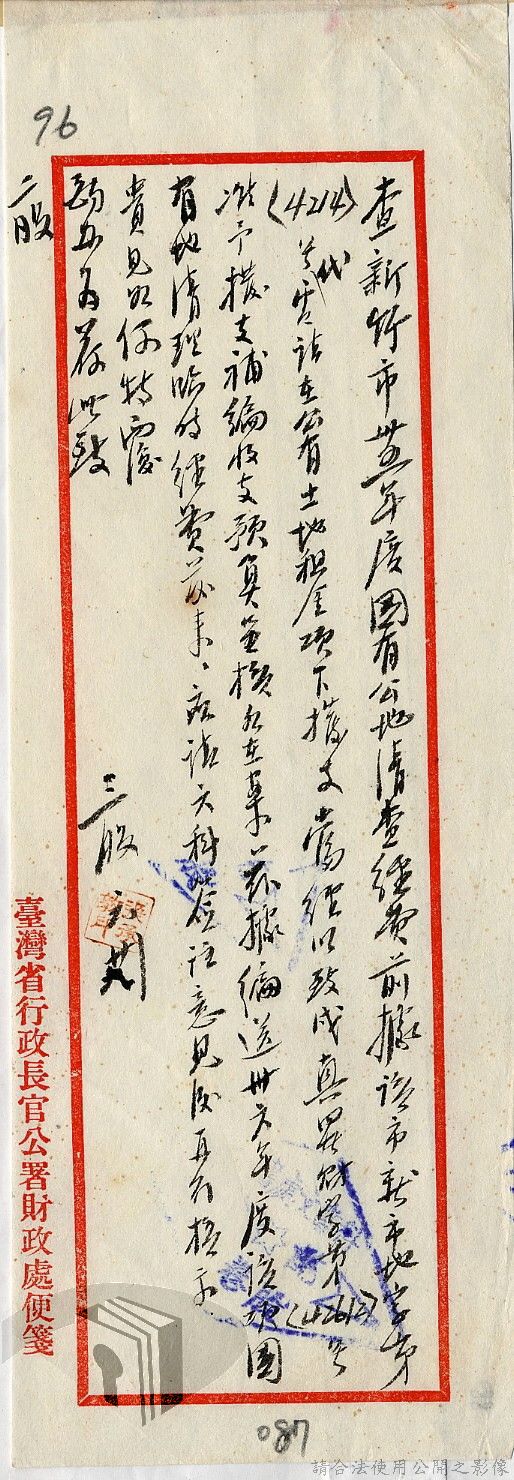 96
查新竹市卅五年度國有公地清查經費前據該市新市地字第
(4214)代電請在公有土地租金項下撥支當經以致戌真署財字第(4262)號
准予撥支補編收支預算並檢在案茲據編送卅六年度該項國
有地清理臨時經費前來應請六科簽註意見後再行核示
貴見如何特覆
為荷此致
二股
三股
臺灣省行政長官公署財政處便箋
087
請合法使用公開之影像